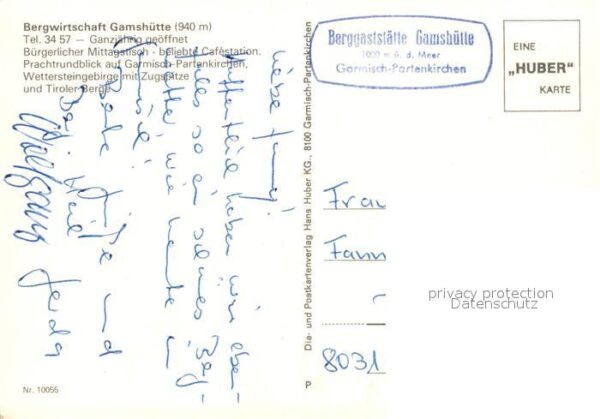 Bergwirtschaft Gamshütte (940 m)
Tel. 34 57 — Ganzjährig geöffnet
Bürgerlicher Mittagstisch - beliebte Caféstation.
Prachtrundblick auf Garmisch-Partenkirchen,
Wettersteingebirge mit Zugspitze
und Tiroler Berge
Berggaststätte Gamshütte
1000 m ü. d. Meer
Garmisch-Partenkirchen
EINE
„HUBER"
KARTE
Liebe
Hoffentlich haben wir eben-
alles so ein schönes
wie heute in
Beste Grüße und
Wolfgang
Dia- und Postkartenverlag Hans Huber KG., 8100 Garmisch-Partenkirchen
Frau
Fann
8031
privacy protection
Datenschutz
P
Nr. 10055